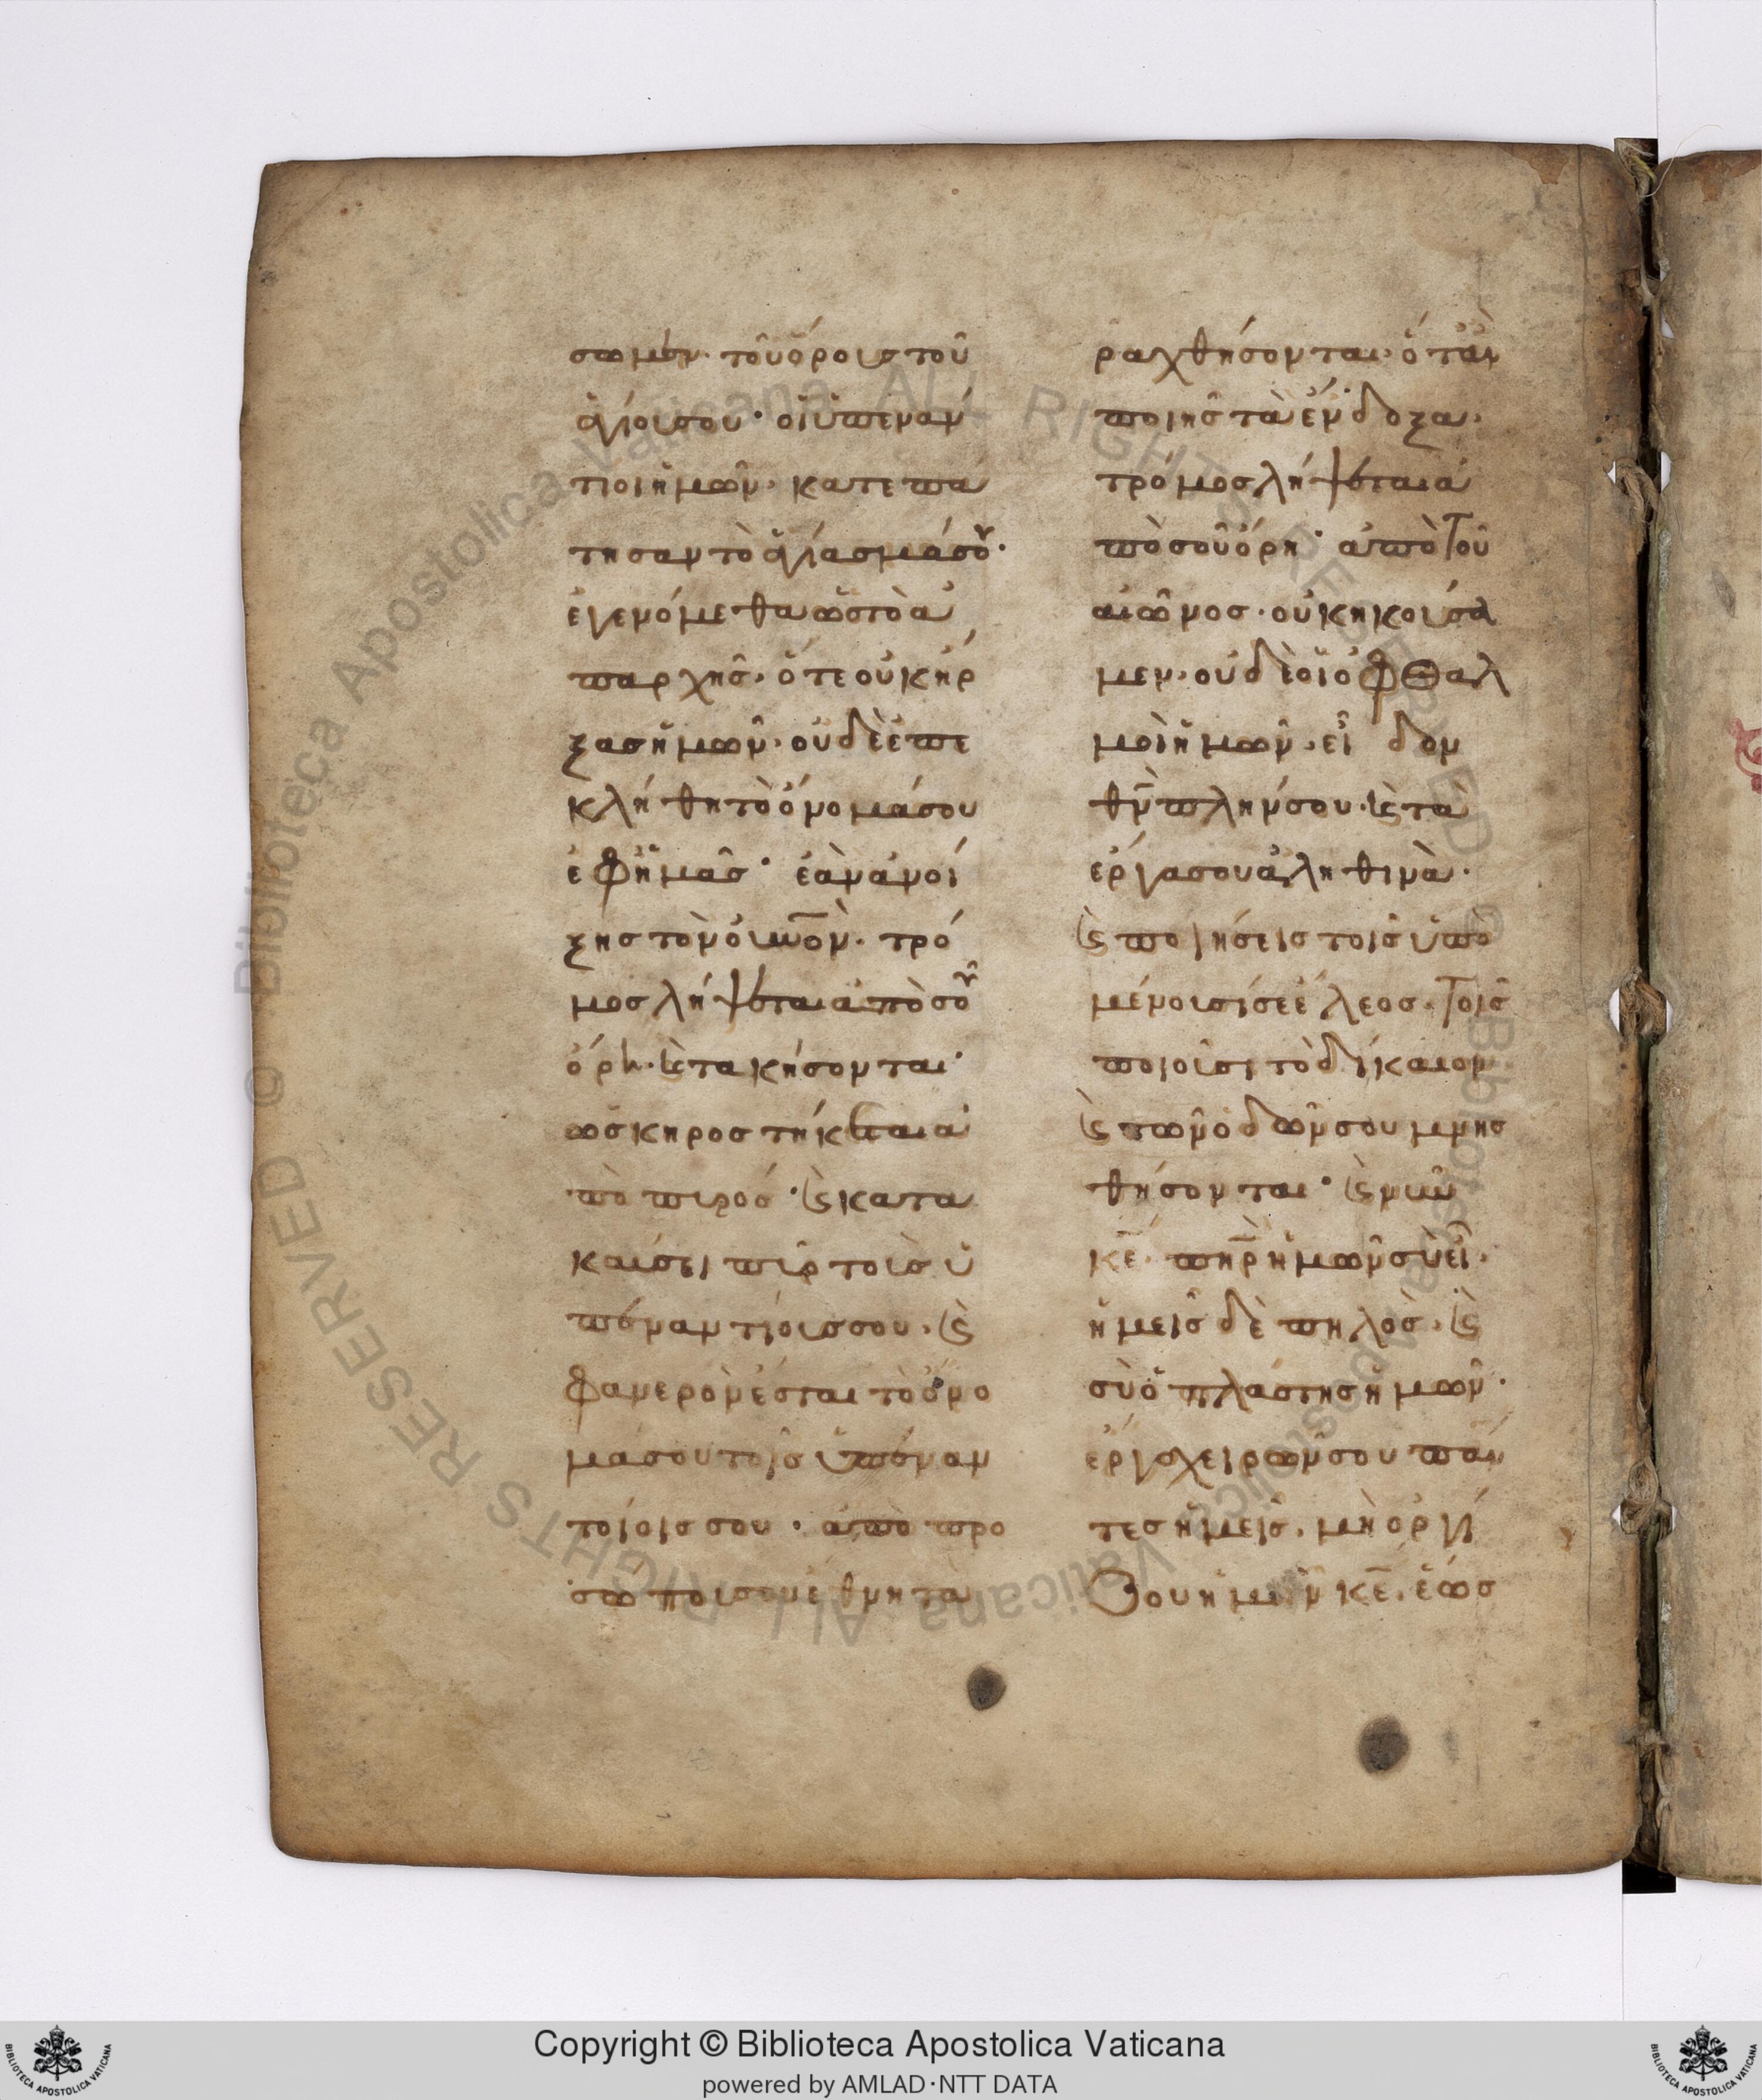 σωμεν· τοῦ ὄρους τοῦ
ἁγίου σου· οἱ ὑπεναν
τιοι ἡμῶν· κατεπά
τησαν τὸ ἁγίασμά σου·
ἐγενόμεθα ὡς τὸ ἀ
παρχῆς· ὅτε οὐκ ἦρ
ξας ἡμῶν· οὐδὲ ἐπε
κλήθη τὸ ὄνομά σου
ἐφ ἡμᾶς· ἐὰν ἀνοί
ξης τὸν οὐνον· τρό
μος λήψεται ἀπὸ σοῦ
ὄρη· ϗ τακήσονται·
ὡς κηρος τήκεται ἀ
πὸ πυρός· ϗ κατα
καύσει πῦρ τοὺς ὑ
πεναντίους σου· ϗ
φανερὸν ἔσται τὸ ὄνο
μά σου τοῖς ὑπεναν
τοίοις σου· ἀπὸ προ
σώπου σου ἔθνη τα
ραχθήσονται· ὅταν
ποιῆς τὰ ἔνδοξα·
τρόμος λήψεται ἀ
πὸ σοῦ ὄρη· ἀπὸ τοῦ
αἰῶνος· οὐκ ηκούσα
μεν· οὐδὲ οἱ ὀφθαλ
μοὶ ἡμῶν· εἶδον
θν πλην σου· ϗ τὰ
ἔργα σου ἀληθινὰ·
ϗ ποιήσεις τοῖς ὑπο
μένουσί σε ἔλεος· τοῖς
ποιοῦσι τὸ δίκαιον
ϗ τῶν ὁδῶν σου μνησ
θήσονται· ϗ νῦν
κε· πηρ ἡμῶν σὺ εἶ·
ἡμεῖς δὲ πηλὸς· ϗ
σὺ ὁ πλάστης ἡμῶν·
ἔργα χειρῶν σου πάν
τες ἡμεῖς· μὴ ὀργί
ζου ἡμῖν κε· ἕως
Copyright © Biblioteca Apostolica Vaticana
powered by AMLAD·NTT DATA